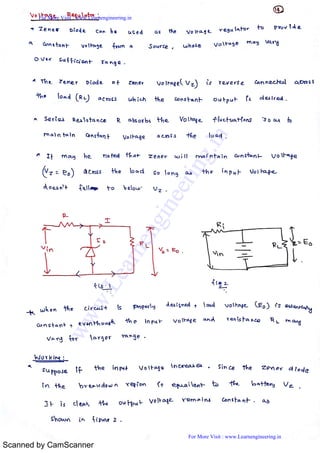 For More Visit : www.Learnengineering.in
Voltage Regulator :
* Zener Diode can be used as the voltage regulator to provide
a constant voltage from a source, whose voltage may vary
over sufficient range.
* The Zener Diode of zener voltage (Vz) is reverse connected across
the load (RL) across which the constant output is desired.
* Series Resistance R absorbs the voltage fluctuations so as to
maintain constant voltage across the load.
* It may be noted that zener will maintain constant voltage
(Vz = E0) across the load so long as the input voltage
doesn't fall to below Vz.
R I
Vin Ez RL Vz = E0.
fig 1
Ri
Vin RL Vz = E0
fig 2.
* When the circuit is properly designed, load voltage (E0) is essentially
constant, eventhough the input voltage and resistance RL may
vary for larger range.
Working :
* Suppose If the input voltage increases. Since the zener diode
in the breakdown region is equailent to the battery Vz.
It is clear, the output voltage remains constant. as
shown in figure 2.
www.Learnengineering.in
For More Visit : www.Learnengineering.in
Scanned by CamScanner